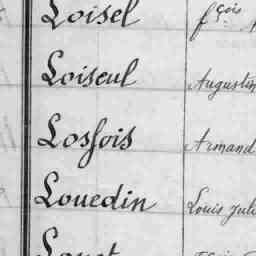 Loisel fçois
Loiseul Augustin
Losfois Armand
Louedin Louis Jule